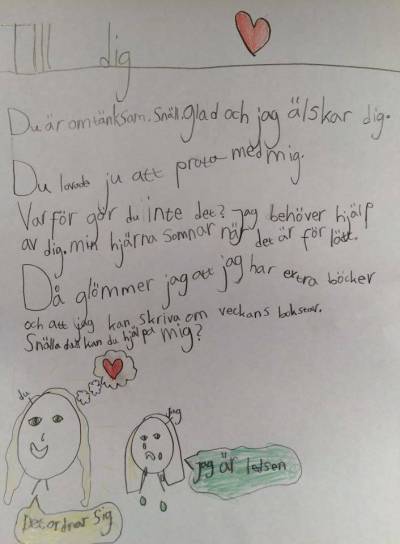 Till dig
Du är omtänksam. Snäll. glad och jag älskar dig.
Du lovade ju att prata med mig.
Varför gör du inte det? Jag behöver hjälp
av dig. min hjärna somnar när det är för lätt.
Då glömmer jag att jag har extra böcker
och att jag kan skriva om veckans bokstav.
Snälla du kan du hjälpa mig?
du
jag
jag är ledsen
Det ordnar sig